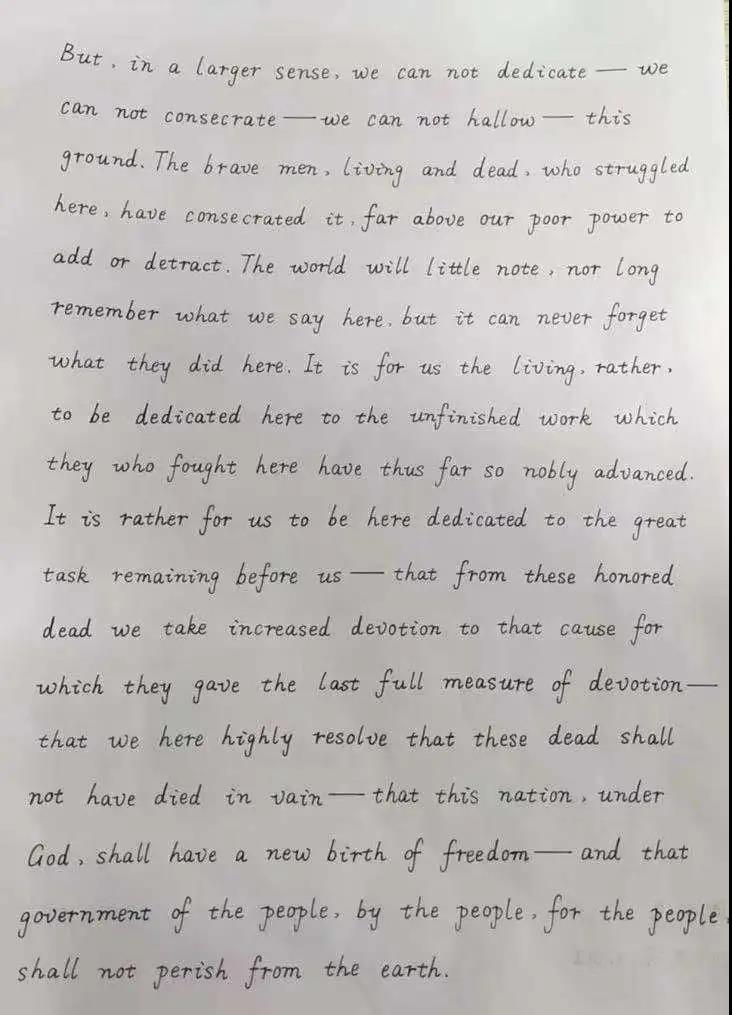 But, in a larger sense, we can not dedicate — we
can not consecrate — we can not hallow — this
ground. The brave men, living and dead, who struggled
here, have consecrated it, far above our poor power to
add or detract. The world will little note, nor long
remember what we say here, but it can never forget
what they did here. It is for us the living, rather,
to be dedicated here to the unfinished work which
they who fought here have thus far so nobly advanced.
It is rather for us to be here dedicated to the great
task remaining before us — that from these honored
dead we take increased devotion to that cause for
which they gave the last full measure of devotion —
that we here highly resolve that these dead shall
not have died in vain — that this nation, under
God, shall have a new birth of freedom — and that
government of the people, by the people, for the people,
shall not perish from the earth.